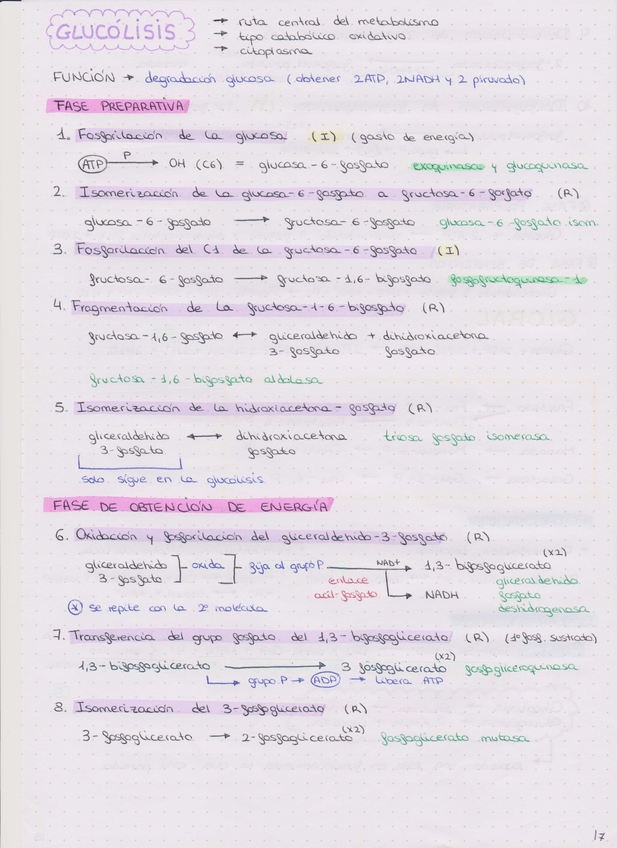 GLUCÓLISIS
→ ruta central del metabolismo
→ tipo catabólico oxidativo
→ citoplasma
FUNCIÓN → degradación glucosa (obtener 2ATP, 2NADH y 2 piruvado)
FASE PREPARATIVA
1. Fosforilación de la glucosa (I) (gasto de energía)
ATP P → OH (C6) = glucosa-6-fosfato exoquinasa y glucoquinasa
2. Isomerización de la glucosa-6-fosfato a fructosa-6-forfato (R)
glucosa-6-fosfato → fructosa-6-fosfato glucosa-6-fosfato isom.
3. Fosforilación del C1 de la fructosa-6-fosfato (I)
fructosa-6-fosfato → fructosa-1,6-bifosfato fosfofructoquinasa-1
4. Fragmentación de la fructosa-1-6-bifosfato (R)
fructosa-1,6-fosfato ↔ gliceraldehido + dihidroxiacetona
3-fosfato fosfato
fructosa-1,6-bifosfato aldolasa
5. Isomerización de la hidroxiacetona-fosfato (R)
gliceraldehido ↔ dihidroxiacetona triosa fosfato isomerasa
3-fosfato fosfato
solo sigue en la glucolisis
FASE DE OBTENCIÓN DE ENERGÍA
6. Oxidación y fosforilación del gliceraldehido-3-fosfato (R)
gliceraldehido oxida fija al grupo P NAD+ → 1,3-bifosfoglicerato (x2)
3-fosfato enlace gliceraldehido
acil-fosfato → NADH fosfato
* se repite con la 2ª molécula deshidrogenasa
7. Transferencia del grupo fosfato del 1,3-bifosfoglicerato (R) (1º fosf. sustrato)
1,3-bifosfoglicerato → 3 fosfoglicerato (x2) fosfogliceroquinasa
→ grupo P → ADP → libera ATP
8. Isomerización del 3-fosfoglicerato (R)
3-fosfoglicerato → 2-fosfoglicerato (x2) fosfoglicerato mutasa
17